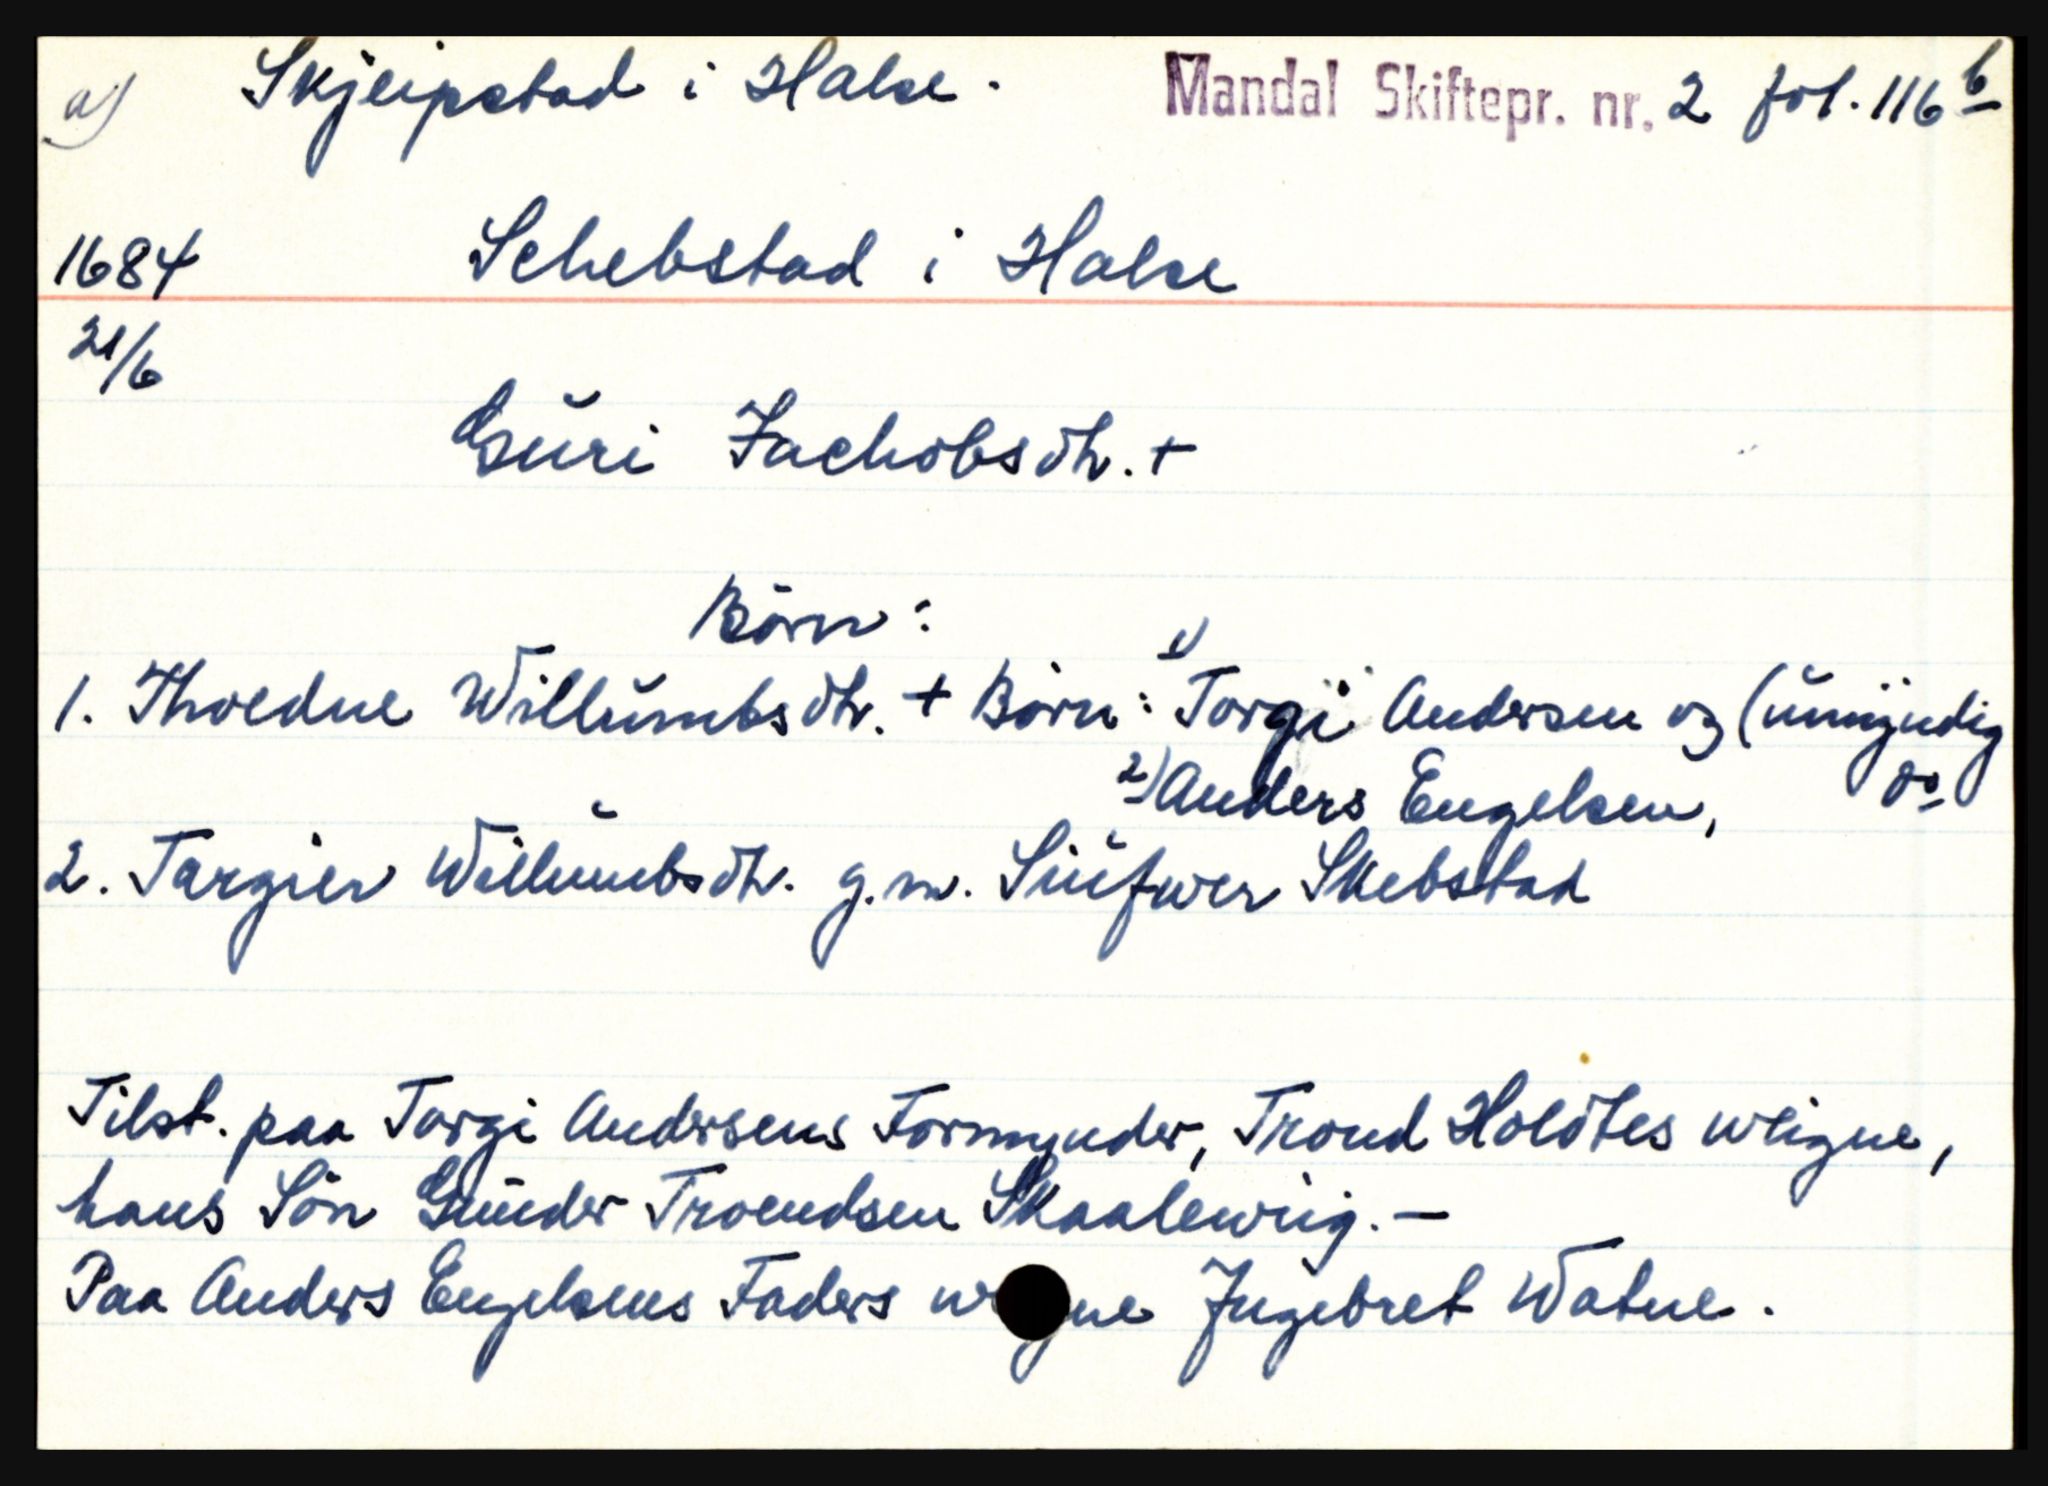 a) Skjeipstad i Halse. Mandal Skiftepr. nr. 2 fol. 116 b
1684 Schebstad i Halse
21/6
Guri Jachobsdtr. +
Börn:
1. Thoedne Willumbsdtr. + Börn: 1) Torgi Andersen og (umyndig
2) Anders Engelsen, do
2. Targier Willumbsdtr. g.m. Siufwer Skebstad
Tilst. paa Torgi Andersens Formynder, Trond Holötes weigne,
hans Sön Gunder Troendsen Skaalewiig. —
Paa Anders Engelsens Faders Jngebret Watne.